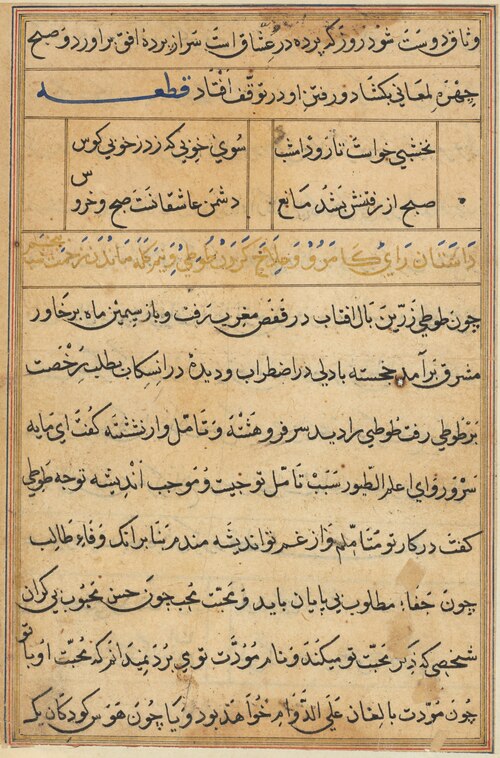 وثاق دوست شود روز که پرده در عشاق است سر از پردهٔ افق براورد و صبح
چهرهٔ لمعانی بکشاد و رفتن او در توقف افتاد قطعه
نخشبی خواست تا رود امشب سوی خوبی که زد ز خوبی کوس
صبح از رفتنش بشد مانع دشمن عاشقانست صبح و خروس
داستان رای کامرو و
چون طوطی زرین بال افتاب در قفص مغرب رفت و باز سیمین ماه بر خاور
مشرق برآمد خجسته با دلی در اضطراب و دیدهٔ در انسکاب بطلب رخصت
بر طوطی رفت طوطی را دید سر فرو هشته و تامل وار نشسته گفت ای مایه
سرور و ای اعلم الطیور سبب تامل تو چیست و موجب اندیشه تو چه طوطی
گفت در کار تو متاملم و از غم تو اندیشه مندم بنا برانک وفاء طالب
چون جفاء مطلوب بی پایان باید و محبت محب چون حسن محبوب بی کران
شخصی که دم محبت تو میکند و نام مودت توی برد نمیدانم که محبت او با تو
چون مودت بالغان علی الدوام خواهد بود و یا چون هوس کودکان یک